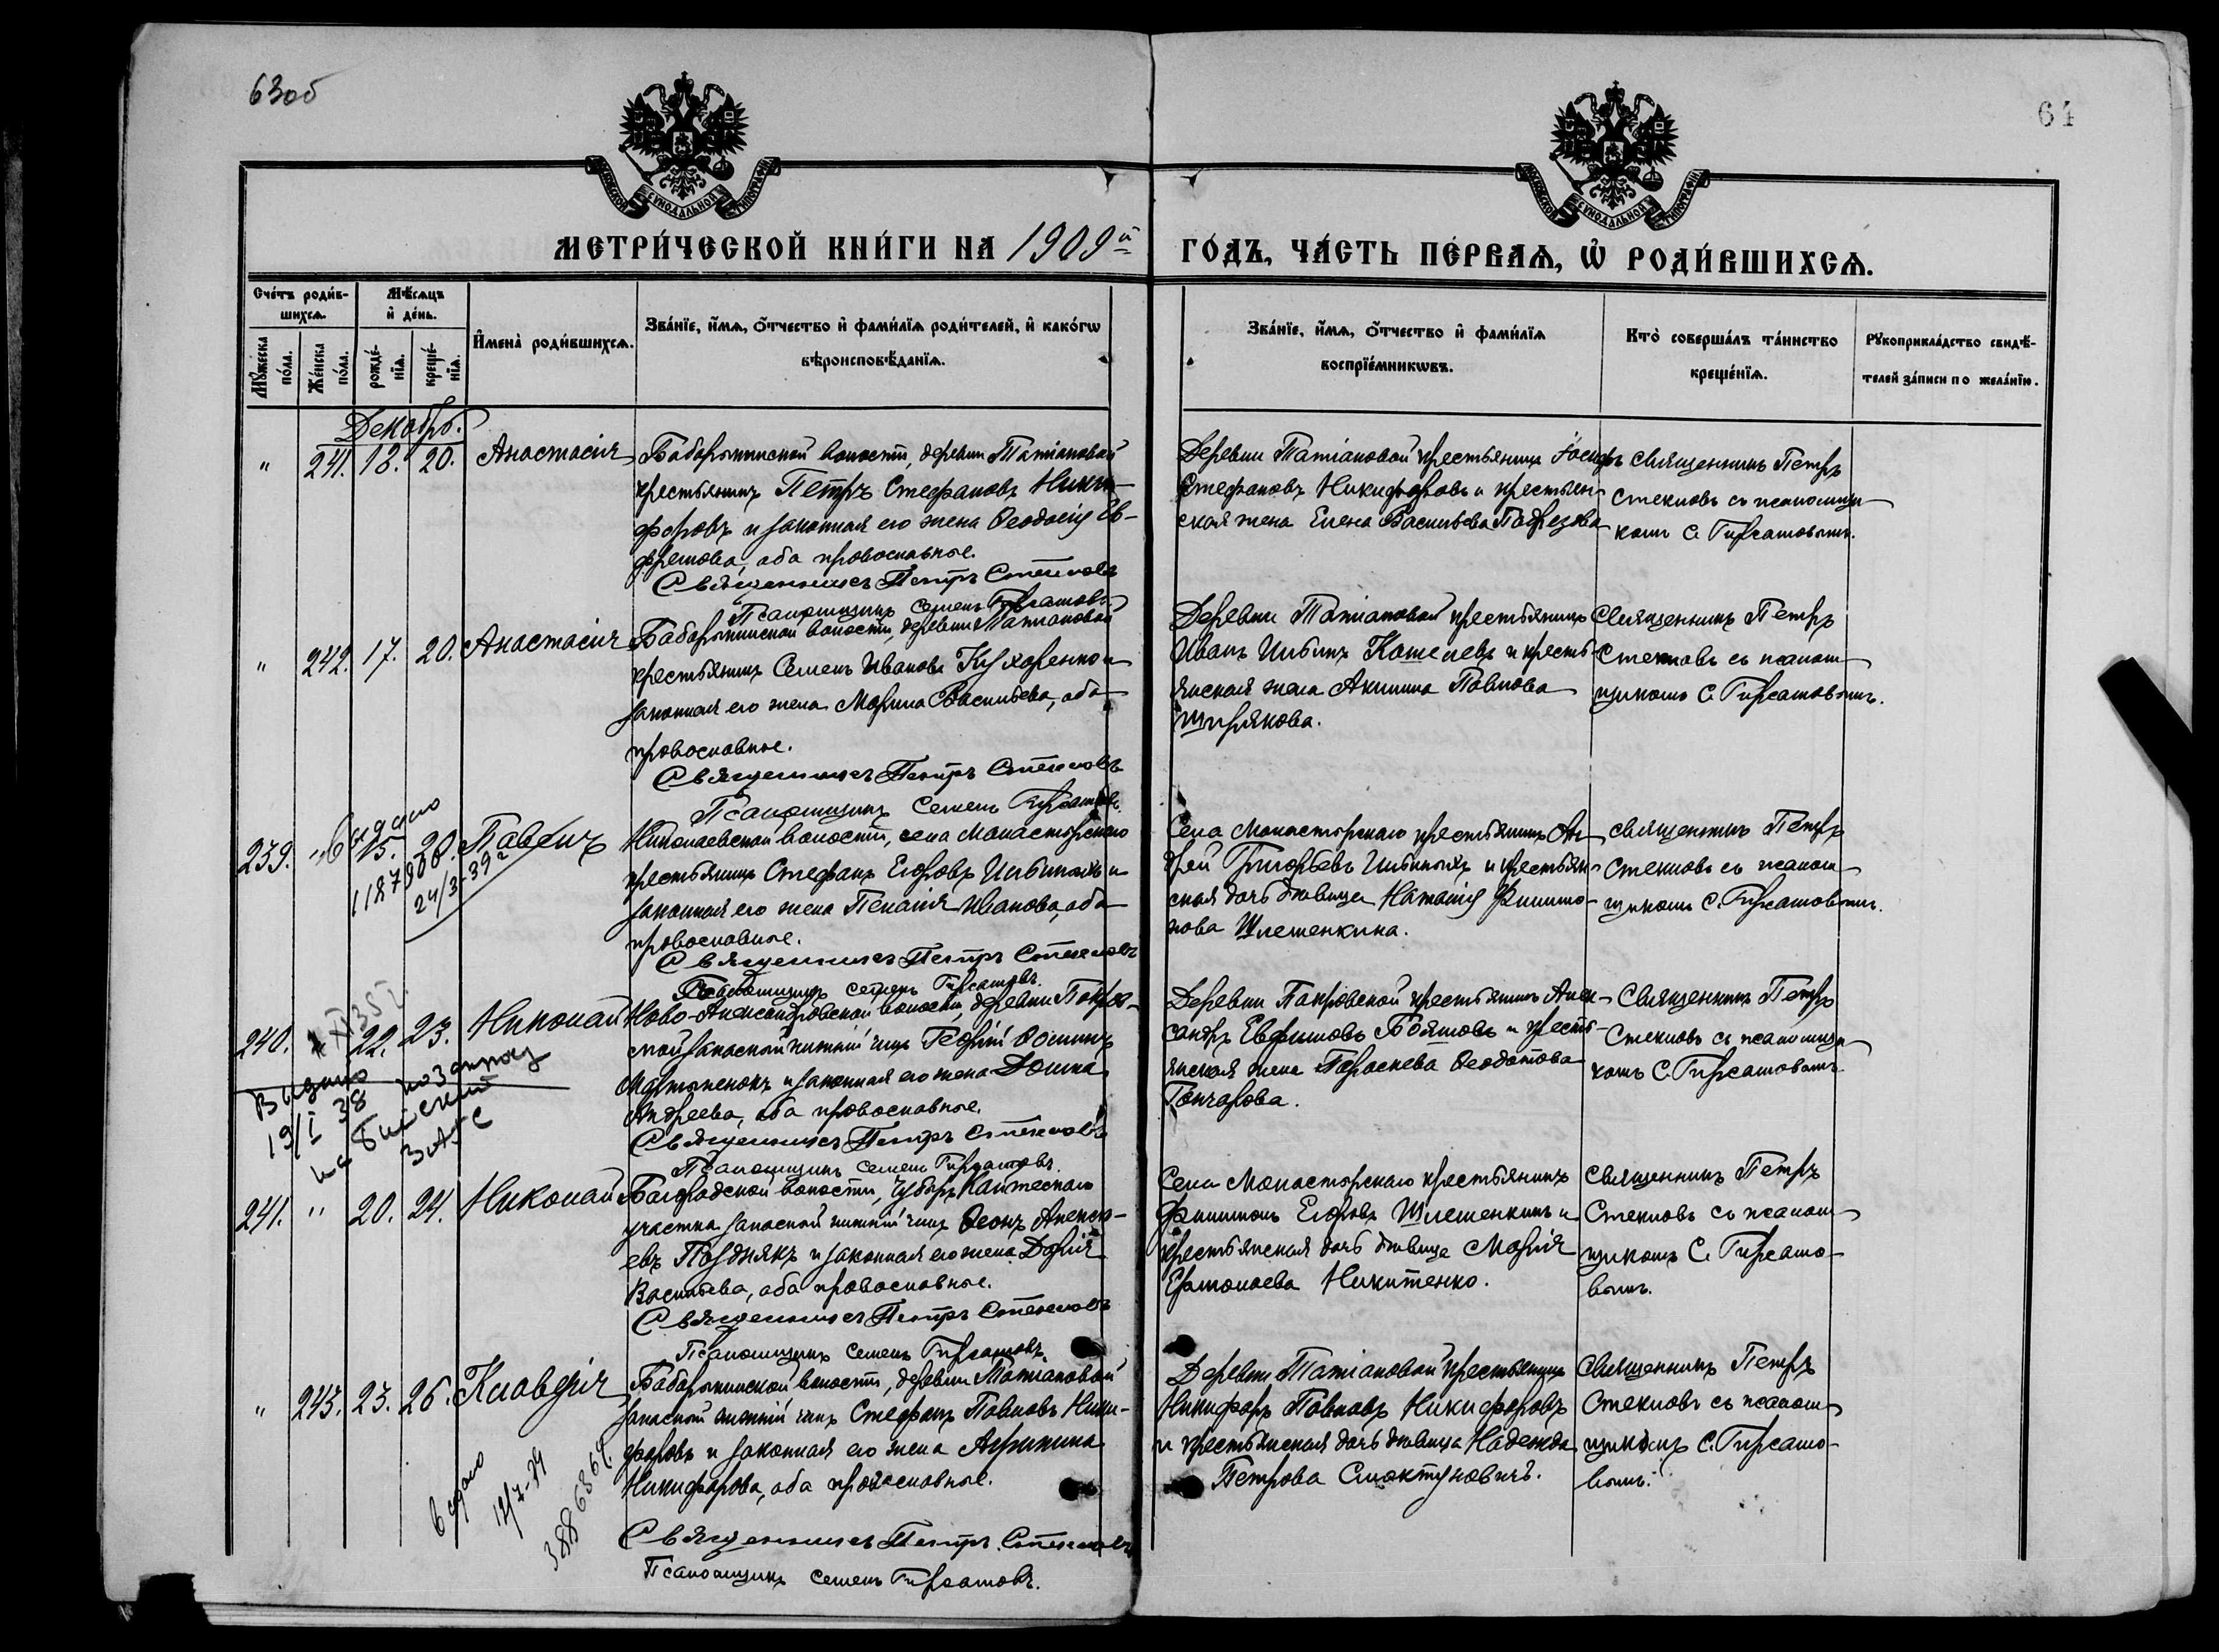 63об
64
МОСКОВСКОЙ СѴНОДАЛЬНОЙ ТИПОГРАФІИ
МОСКОВСКОЙ СѴНОДАЛЬНОЙ ТИПОГРАФІИ
МЕТРИ́ЧЕСКОЙ КНИ́ГИ НА 1909й ГО́ДЪ, ЧА́СТЬ ПЕ́РВАѦ, Ѡ҆ РОДИ́ВШИХСѦ.
Сче́тъ роди́в-
шихсѧ.
Мѣ́сѧцъ
и҆ де́нь.
Мꙋ́жеска
по́ла.
Же́нска
по́ла.
рожде́-
нїѧ.
креще́-
нїѧ.
И҆мена̀ роди́вшихсѧ.
Зва́нїе, и҆́мѧ, ѻ҆́тчество и҆ фами́лїѧ роди́телей, и҆ како́гѡ
вѣроисповѣ́данїѧ.
Зва́нїе, и҆́мѧ, ѻ҆́тчество и҆ фами́лїѧ
воспрїе́мникѡвъ.
Кто̀ соверша́лъ та́инство
креще́нїѧ.
Рꙋкоприкла́дство свидѣ́-
телей за́писи по жела́нїю.
Декабрь.
" 241. 18. 20. Анастасія
Бабарыкинской волости, деревни Татіановой
крестьянинъ Петръ Стефановъ Ники-
форовъ и законная его жена Ѳеодосія Ев-
фремова, оба православные.
Священникъ Петръ Стекловъ
Псаломщикъ Семенъ Гирсамовъ.
Деревни Татіановой крестьянинъ Іосифъ
Стефановъ Никифоровъ и крестьян-
ская жена Елена Васильева Подрезова
Священникъ Петръ
Стекловъ съ псаломщи-
комъ С. Гирсамовымъ.
" 242. 17. 20. Анастасія
Бабарыкинской волости, деревни Татіановой
крестьянинъ Семенъ Ивановъ Кухаренко и
законная его жена Марина Васильева, оба
православные.
Священникъ Петръ Стекловъ
Псаломщикъ Семенъ Гирсамовъ.
Деревни Татіановой крестьянинъ
Иванъ Ильинъ Кошелевъ и кресть-
янская жена Акилина Павлова
Ширякова.
Священникъ Петръ
Стекловъ съ псалом-
щикомъ С. Гирсамовымъ.
239. " 15. 20. Павелъ
выдано
1187900
24/3-39г
Николаевской волости, села Монастырскаго
крестьянинъ Стефанъ Егоровъ Ильиныхъ и
законная его жена Пелагія Иванова, оба
православные.
Священникъ Петръ Стекловъ
Псаломщикъ Семенъ Гирсамовъ.
Села Монастырскаго крестьянинъ Ан-
дрей Григорьевъ Ильиныхъ и крестьян-
ская дочь девица Наталія Филимо-
нова Шлешенкина.
Священникъ Петръ
Стекловъ съ псалом-
щикомъ С. Гирсамовымъ.
240. " 22. 23. Николай
Выдано
19/I 38 по запросу
на Бийский
ЗАГС
Ново-Александровской волости, деревни Покров-
ской запасной нижній чинъ Георгій Ѳоминъ
Мартыненокъ и законная его жена Домна
Андреева, оба православные.
Священникъ Петръ Стекловъ
Псаломщикъ Семенъ Гирсамовъ.
Деревни Покровской крестьянинъ Алек-
сандръ Евфимовъ Бояшовъ и кресть-
янская жена Параскева Ѳеодотова
Гончарова.
Священникъ Петръ
Стекловъ съ псаломщи-
комъ С. Гирсамовымъ.
241. " 20. 24. Николай
волости,
участка запасной нижній чинъ Леонъ Алексѣ-
евъ Позднякъ и законная его жена Дарія
Васильева, оба православные.
Священникъ Петръ Стекловъ
Псаломщикъ Семенъ Гирсамовъ.
Села Монастырскаго крестьянинъ
Филимонъ Егоровъ Шлешенкинъ и
крестьянская дочь девица Марія
Ермолаева Никитенко.
Священникъ Петръ
Стекловъ съ псалом-
щикомъ С. Гирсамо-
вымъ.
" 243. 23. 26. Клавдія
выдано
388686
Бабарыкинской волости, деревни Татіановой
запасной нижній чинъ Стефанъ Павловъ Ники-
форовъ и законная его жена Агрипина
Никифорова, оба православные.
Священникъ Петръ Стекловъ
Псаломщикъ Семенъ Гирсамовъ.
Деревни Татіановой крестьянинъ
Никифоръ Павловъ Никифоровъ
и крестьянская дочь девица Надежда
Петрова Смоктуновичъ.
Священникъ Петръ
Стекловъ съ псалом-
щикомъ С. Гирсамо-
вымъ.